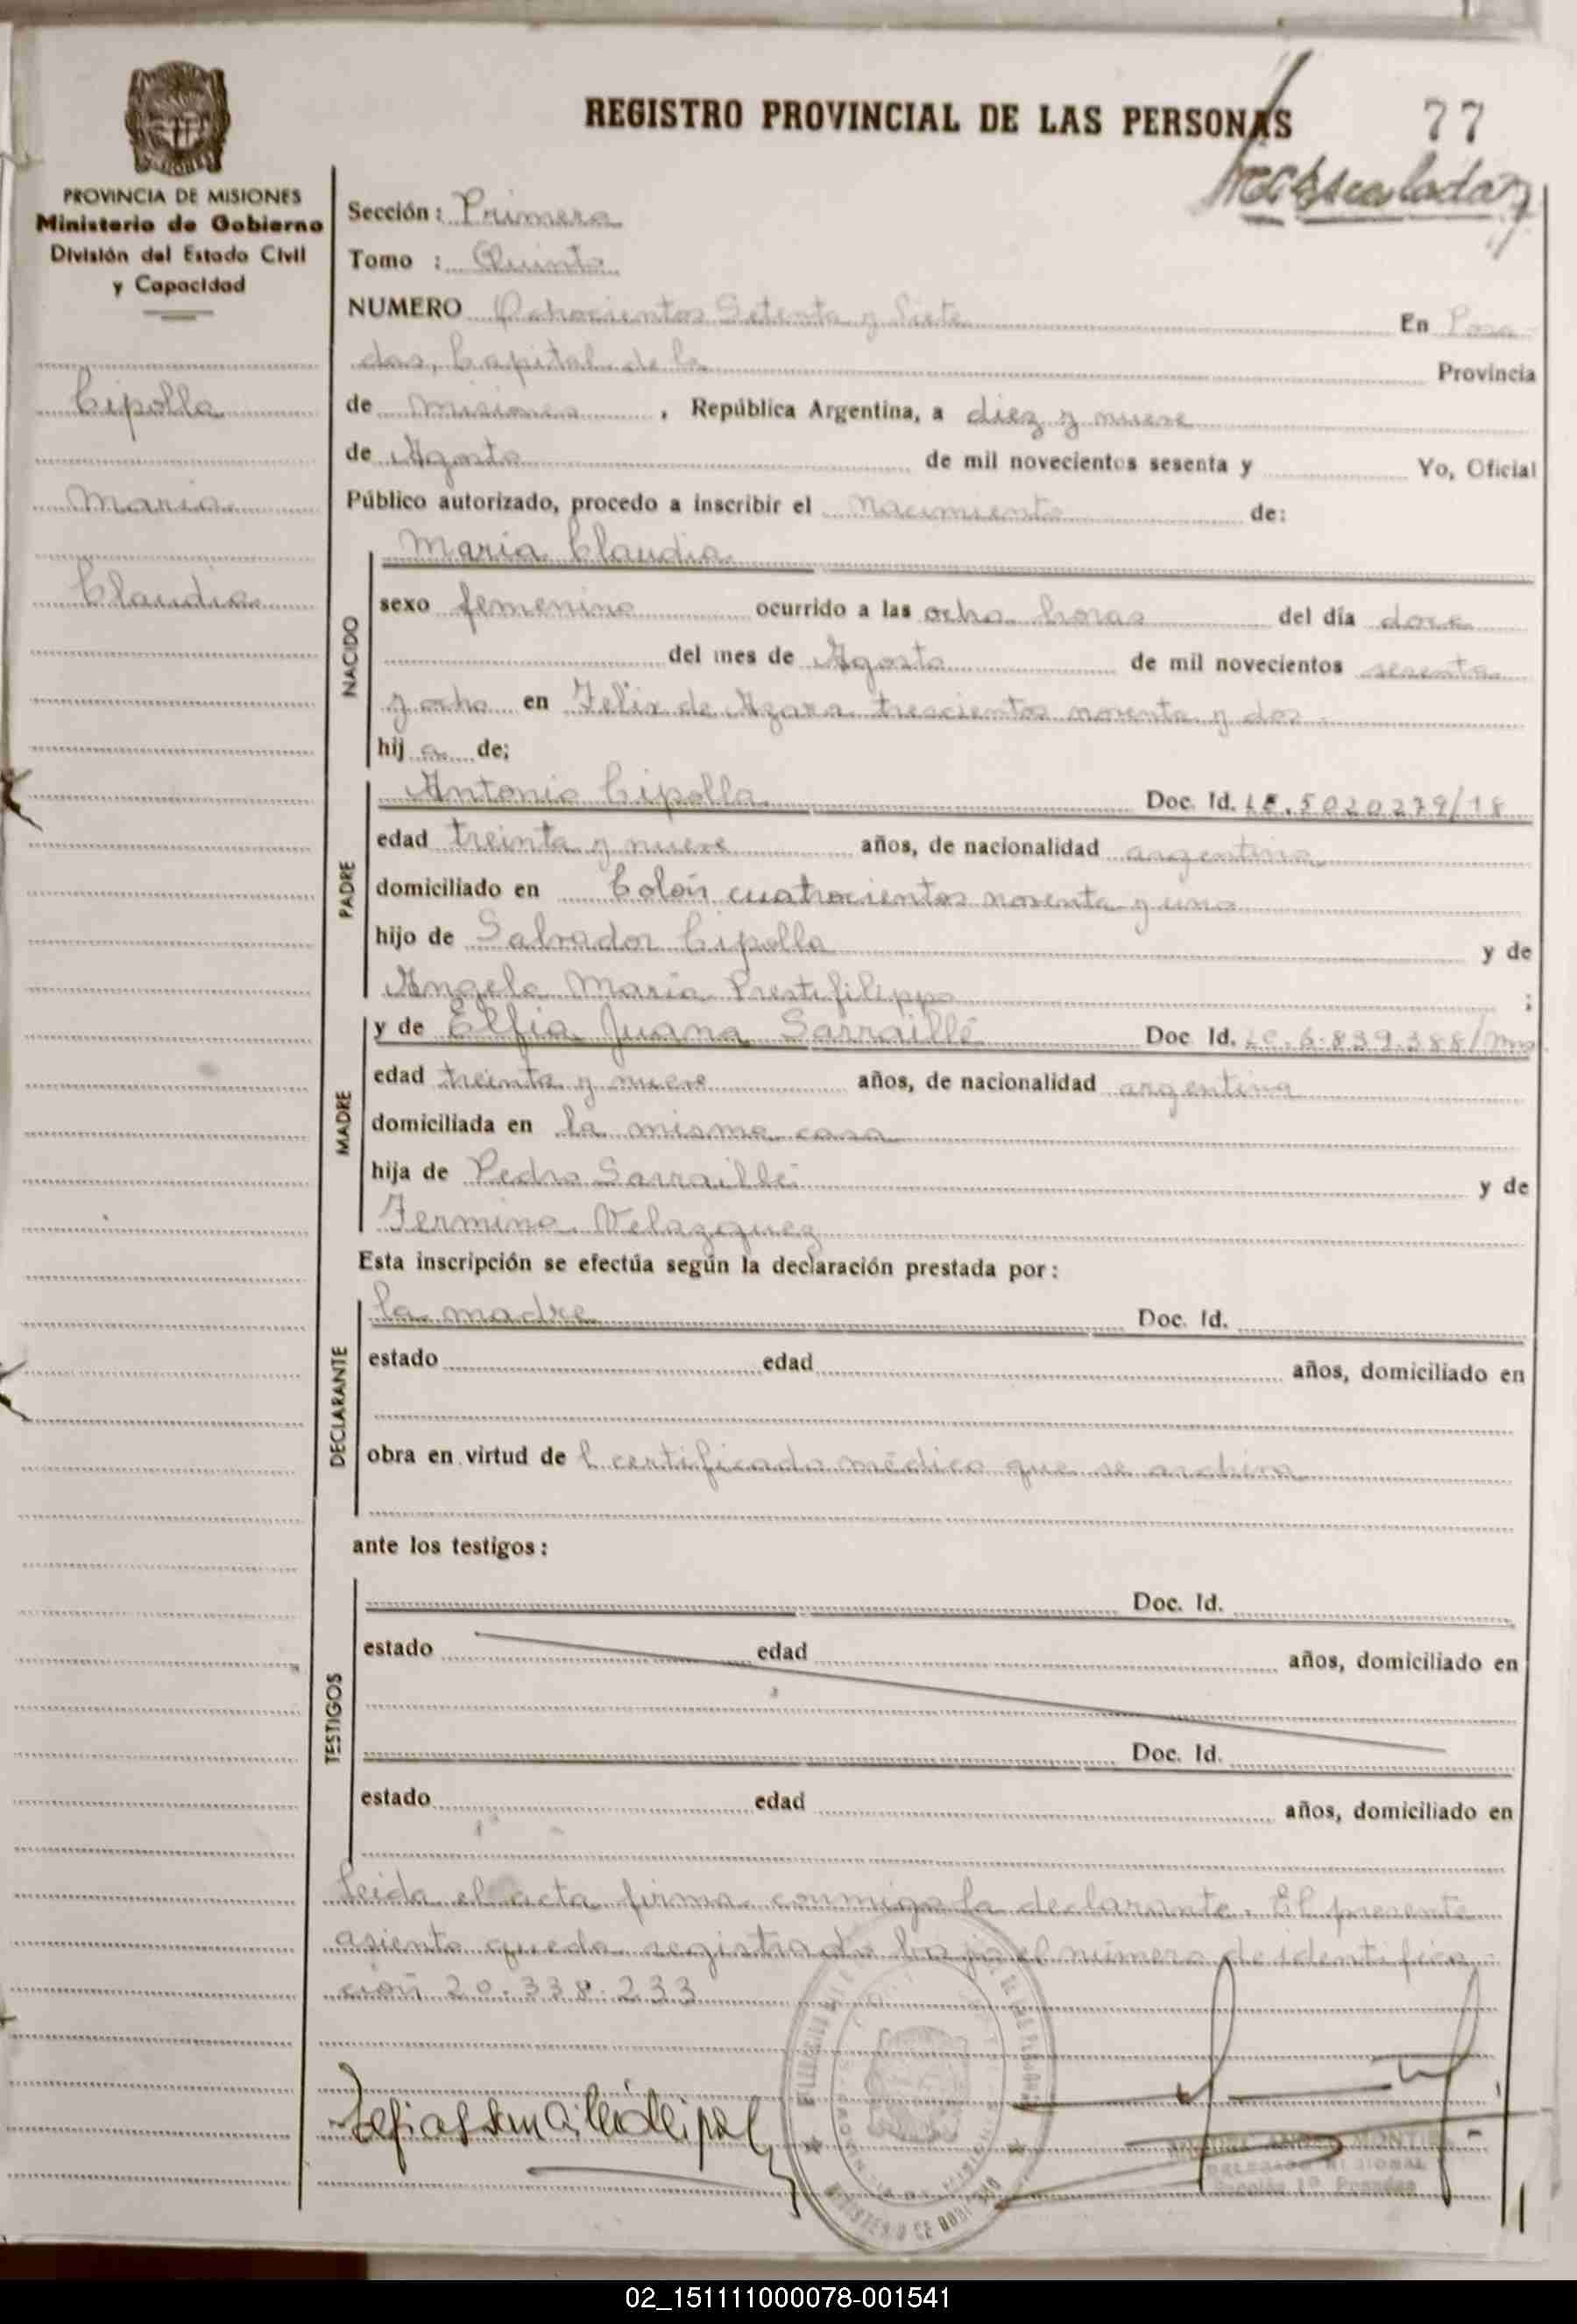 REGISTRO PROVINCIAL DE LAS PERSONAS
77
PROVINCIA DE MISIONES
Ministerio de Gobierno
División del Estado Civil
y Capacidad
Cipolla
Maria
Claudia
Sección: Primera
Tomo : Quinto
NUMERO Ochocientos Setenta y Siete En Posa
das, Capital de la Provincia
de Misiones , República Argentina, a diez y nueve
de Agosto de mil novecientos sesenta y Yo, Oficial
Público autorizado, procedo a inscribir el nacimiento de:
NACIDO
Maria Claudia
sexo femenino ocurrido a las ocho horas del día doce
del mes de Agosto de mil novecientos sesenta
y ocho en Felix de Azara trescientos noventa y dos.
hij a de;
PADRE
Antonio Cipolla Doc. Id. LE. 5020279/18
edad treinta y nueve años, de nacionalidad argentina
domiciliado en Colón cuatrocientos noventa y uno
hijo de Salvador Cipolla y de
Angela Maria Prestifilippo ;
MADRE
y de Elfia Juana Sarraillé Doc Id. LC. 6.839.388/Mns
edad treinta y nueve años, de nacionalidad argentina
domiciliada en la misma casa
hija de Pedro Sarraillé y de
Fermina Velazquez
Esta inscripción se efectúa según la declaración prestada por:
DECLARANTE
la madre Doc. Id.
estado edad años, domiciliado en
obra en virtud de l certificado médico que se archiva
ante los testigos:
TESTIGOS
Doc. Id.
estado edad años, domiciliado en
Doc. Id.
estado edad años, domiciliado en
Leida el acta firma conmigo la declarante. El presente
asiento queda registrado bajo el número de identifica
ción 20.338.233
DELEGADO REGIONAL
Sección 1ª Posadas
02_151111000078-001541